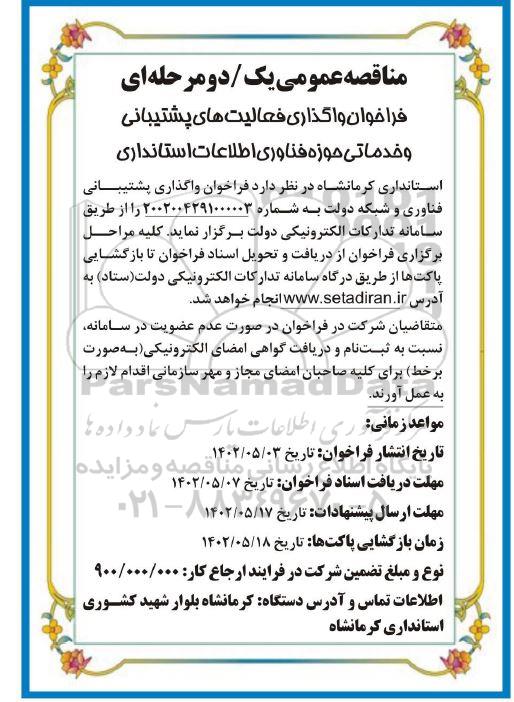 مناقصه عمومی یک/دو مرحله‌ای
فراخوان واگذاری فعالیت‌های پشتیبانی
و خدماتی حوزه فناوری اطلاعات استانداری
استانداری کرمانشاه در نظر دارد فراخوان واگذاری پشتیبانی
فناوری و شبکه دولت به شماره ۲۰۰۲۰۰۴۲۹۱۰۰۰۰۰۳ را از طریق
سامانه تدارکات الکترونیکی دولت برگزار نماید. کلیه مراحل
برگزاری فراخوان از دریافت و تحویل اسناد فراخوان تا بازگشایی
پاکت‌ها از طریق درگاه سامانه تدارکات الکترونیکی دولت(ستاد) به
آدرس www.setadiran.ir انجام خواهد شد.
متقاضیان شرکت در فراخوان در صورت عدم عضویت در سامانه،
نسبت به ثبت‌نام و دریافت گواهی امضای الکترونیکی(به‌صورت
برخط) برای کلیه صاحبان امضای مجاز و مهر سازمانی اقدام لازم را
به عمل آورند.
ParsNamadData
مواعد زمانی:
تاریخ انتشار فراخوان: تاریخ ۱۴۰۲/۰۵/۰۳
پایگاه اطلاع رسانی مناقصه و مزایده
مهلت دریافت اسناد فراخوان: تاریخ ۱۴۰۲/۰۵/۰۷
۰۲۱-۸۸۳۴۹۶۷۰-۵
مهلت ارسال پیشنهادات: تاریخ ۱۴۰۲/۰۵/۱۷
زمان بازگشایی پاکت‌ها: تاریخ ۱۴۰۲/۰۵/۱۸
نوع و مبلغ تضمین شرکت در فرایند ارجاع کار: ۹۰۰/۰۰۰/۰۰۰
اطلاعات تماس و آدرس دستگاه: کرمانشاه بلوار شهید کشوری
استانداری کرمانشاه